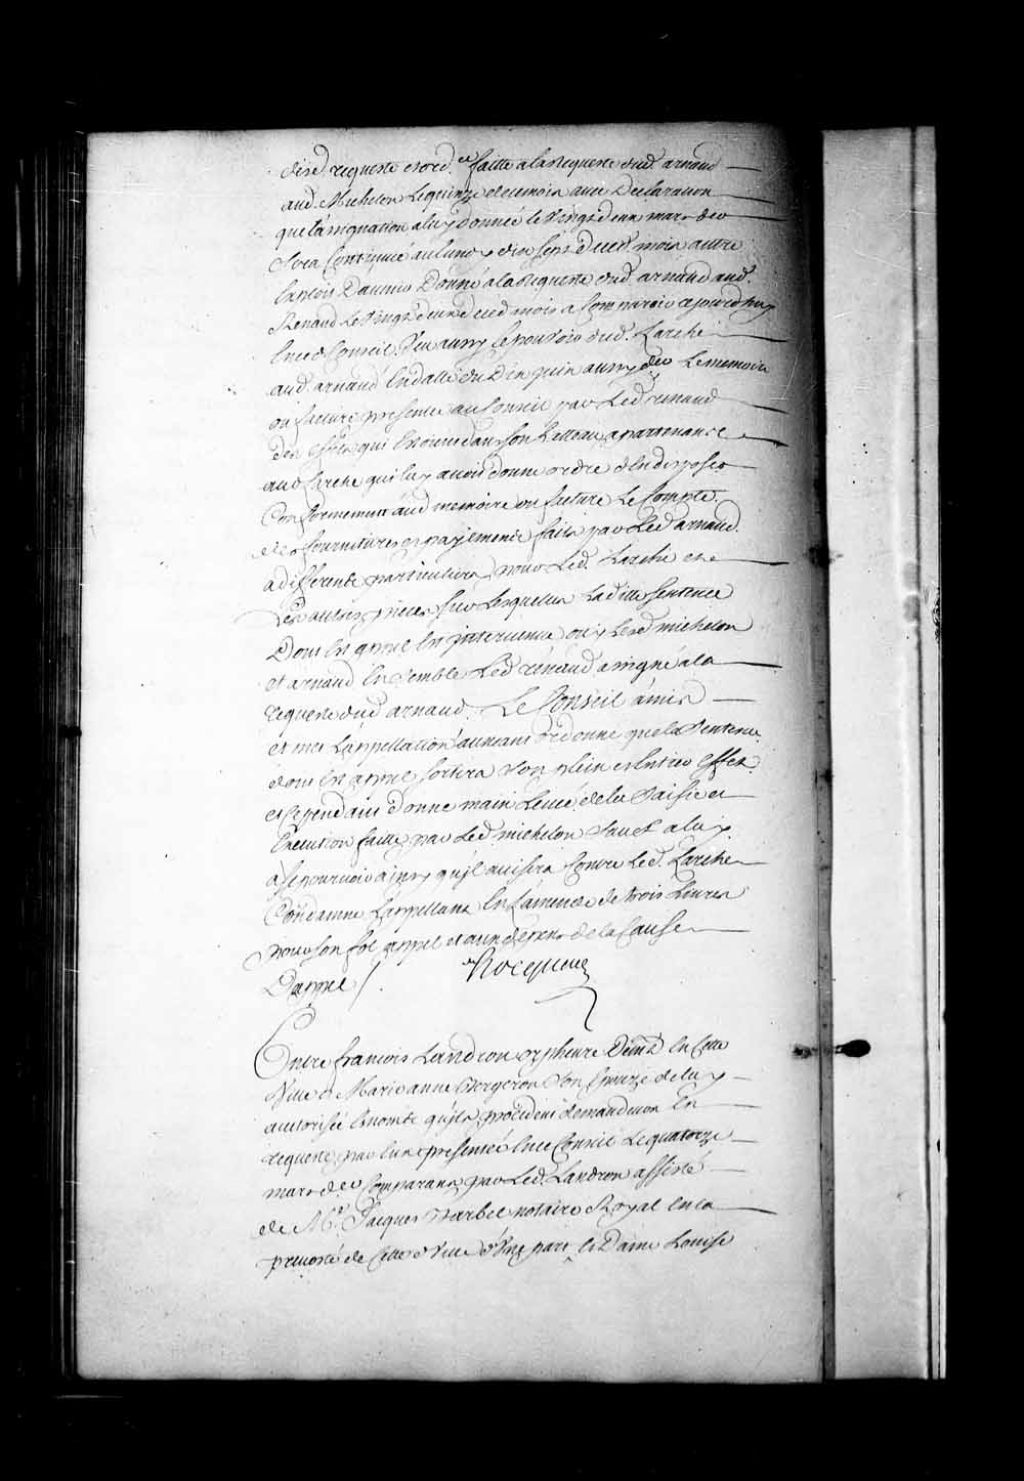 desd requeste et ord.ce faitte a la Requeste dud. arnaud
aud. Michelon Le quinze de ce mois avec Declaration
que l'assignation a luy donnée le Vingt deux mars der
Sera Continuée au lundy dix sept dud mois autre
Exploit D'avenir Donné a la Requeste dud arnaud aud.
Renaud Le Vingt deux dud mois a Comparoir aujourd'huy
En ce Conseil. Veu aussy le pouvoir dud. Larche
aud. arnaud En datte du Dix juin aussy der Le memoire
ou facture presentée au Conseil par Led renaud
des effets qui Etoient dans son batteau apartenans
aud Larche qu'il luy avoit donné ordre d'En disposer
Conformement aud memoire ou facture Le Compte
des fournitures et payements faits par Led arnaud.
a differents particuliers pour Led. Larche et
Les autres pieces sur Lesquelles Laditte Sentence
Dont Est appel Est intervenue ouy Lesd michelon
et arnaud Ensemble Led rénaud assigné a la
requeste dud arnaud. Le Conseil a mis
et met L'appellation au neant ordonne que la Sentence
dont Est appel sortira son plein et Entier effet
et cependant donne main Levée de la Saisie et
Execution faitte par Led. michelon Sauf a luy
a se pourvoir ainsy qu'il avisera Contre Led. Larche
Condamne L'appellant En L'amende de trois Livres
pour son fol appel et aux depens de la Cause
D'appel /. Hocquart
Entre françois Landron orphevre Dem.t En Cette
Ville et Marie anne Bergeron Son Epouze de luy
autorisée Es noms qu'ils procedent demandeurs En
requeste par Eux presentée En ce Conseil Le quatorze
mars der Comparans par Led. Landron assisté
de M.e Jacques Barbel notaire Royal En la
prevosté de Cette Ville d'Une part Et Dame Louise